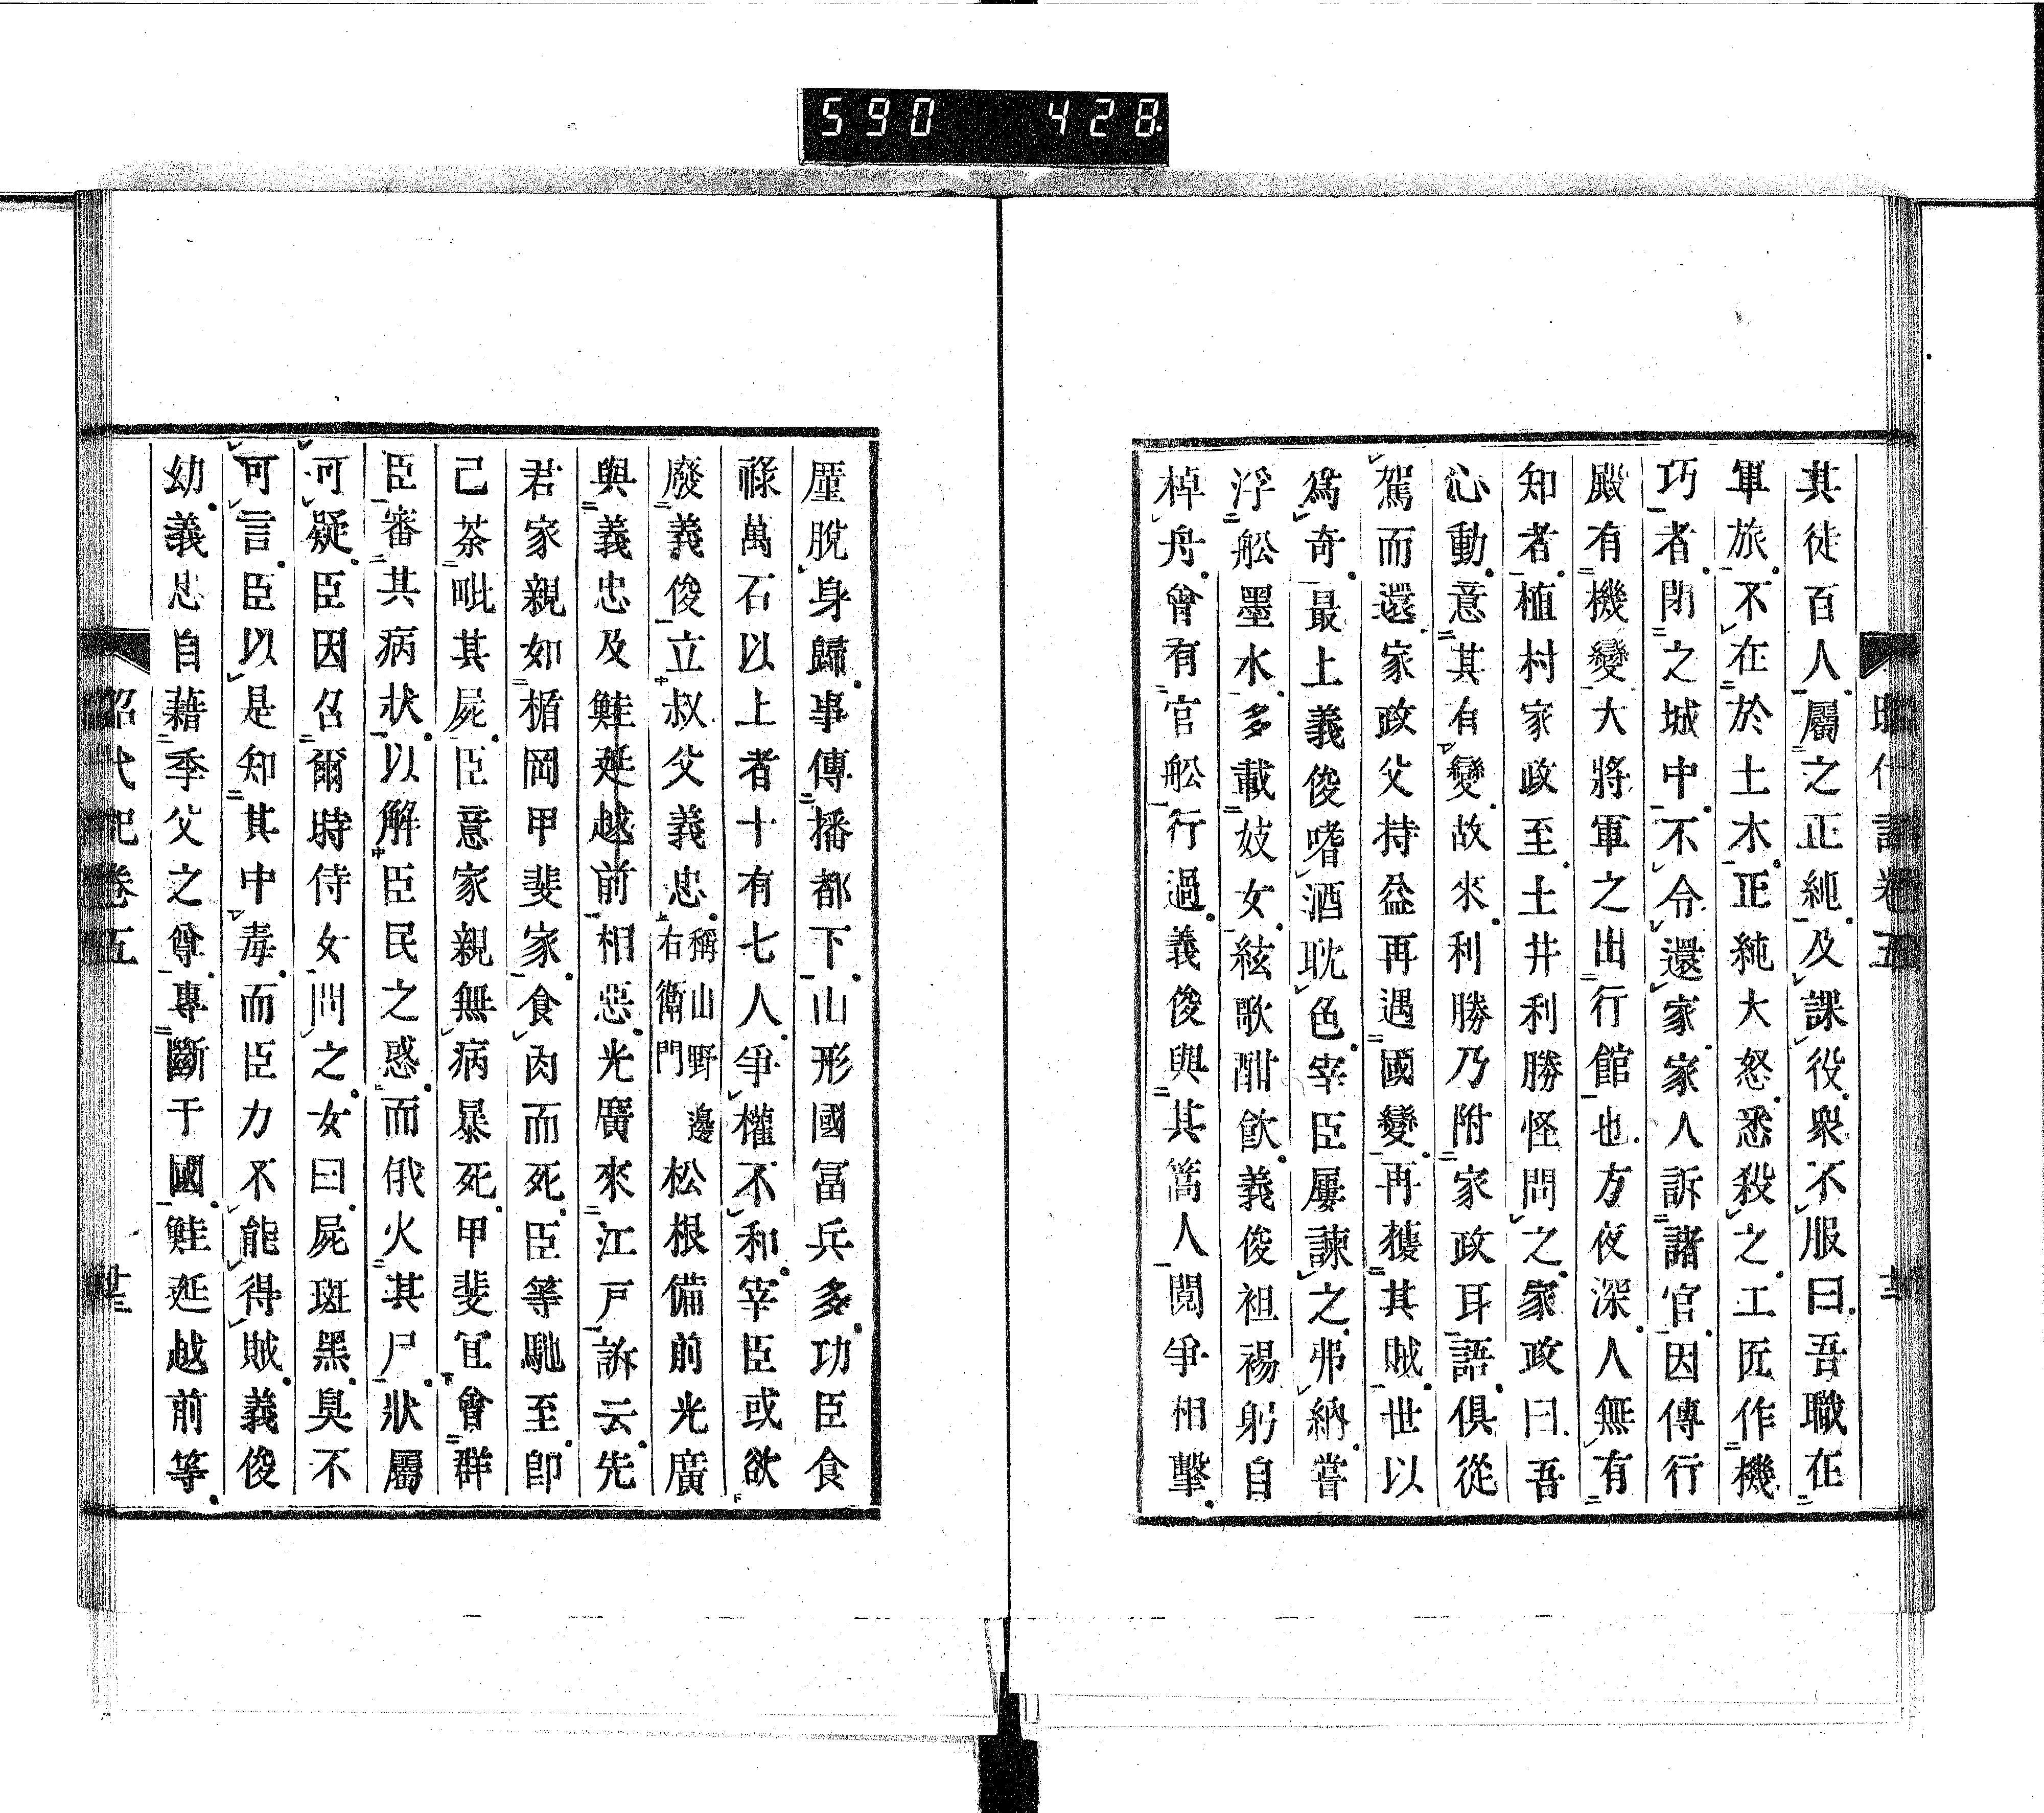 590 428
昭代記卷五
其徒百人屬之正純及課役衆不服曰吾職在
軍旅不在於土木正純大怒悉殺之工匠作機
巧者閉之城中不令還家家人訴諸官因傳行
殿有機變大將軍之出行館也方夜深人無有
知者植村家政至土井利勝怪問之家政曰吾
心動意其有變故來利勝乃附家政耳語俱從
駕而還家政父持益再遇國變再獲其賊世以
爲奇最上義俊嗜酒耽色宰臣屢諫之弗納嘗
浮舩墨水多載妓女絃歌酣飮義俊袒裼躬自
棹舟會有官舩行過義俊與其篙人鬩爭相擊
厪脫身歸事傳播都下山形國冨兵多功臣食
祿萬石以上者十有七人爭權不和宰臣或欲
廢義俊立叔父義忠稱山野邊右衛門松根備前光廣
與義忠及鮭延越前相惡光廣來江戸訴云先
君家親如楯岡甲斐家食肉而死臣等馳至卽
己茶毗其屍臣意家親無病暴死甲斐宜會群
臣審其病狀以解臣民之惑而俄火其尸狀屬
可疑臣因召爾時侍女問之女曰屍斑黑臭不
可言臣以是知其中毒而臣力不能得賊義俊
幼義忠自藉季父之尊專斷于國鮭延越前等
昭代記卷五